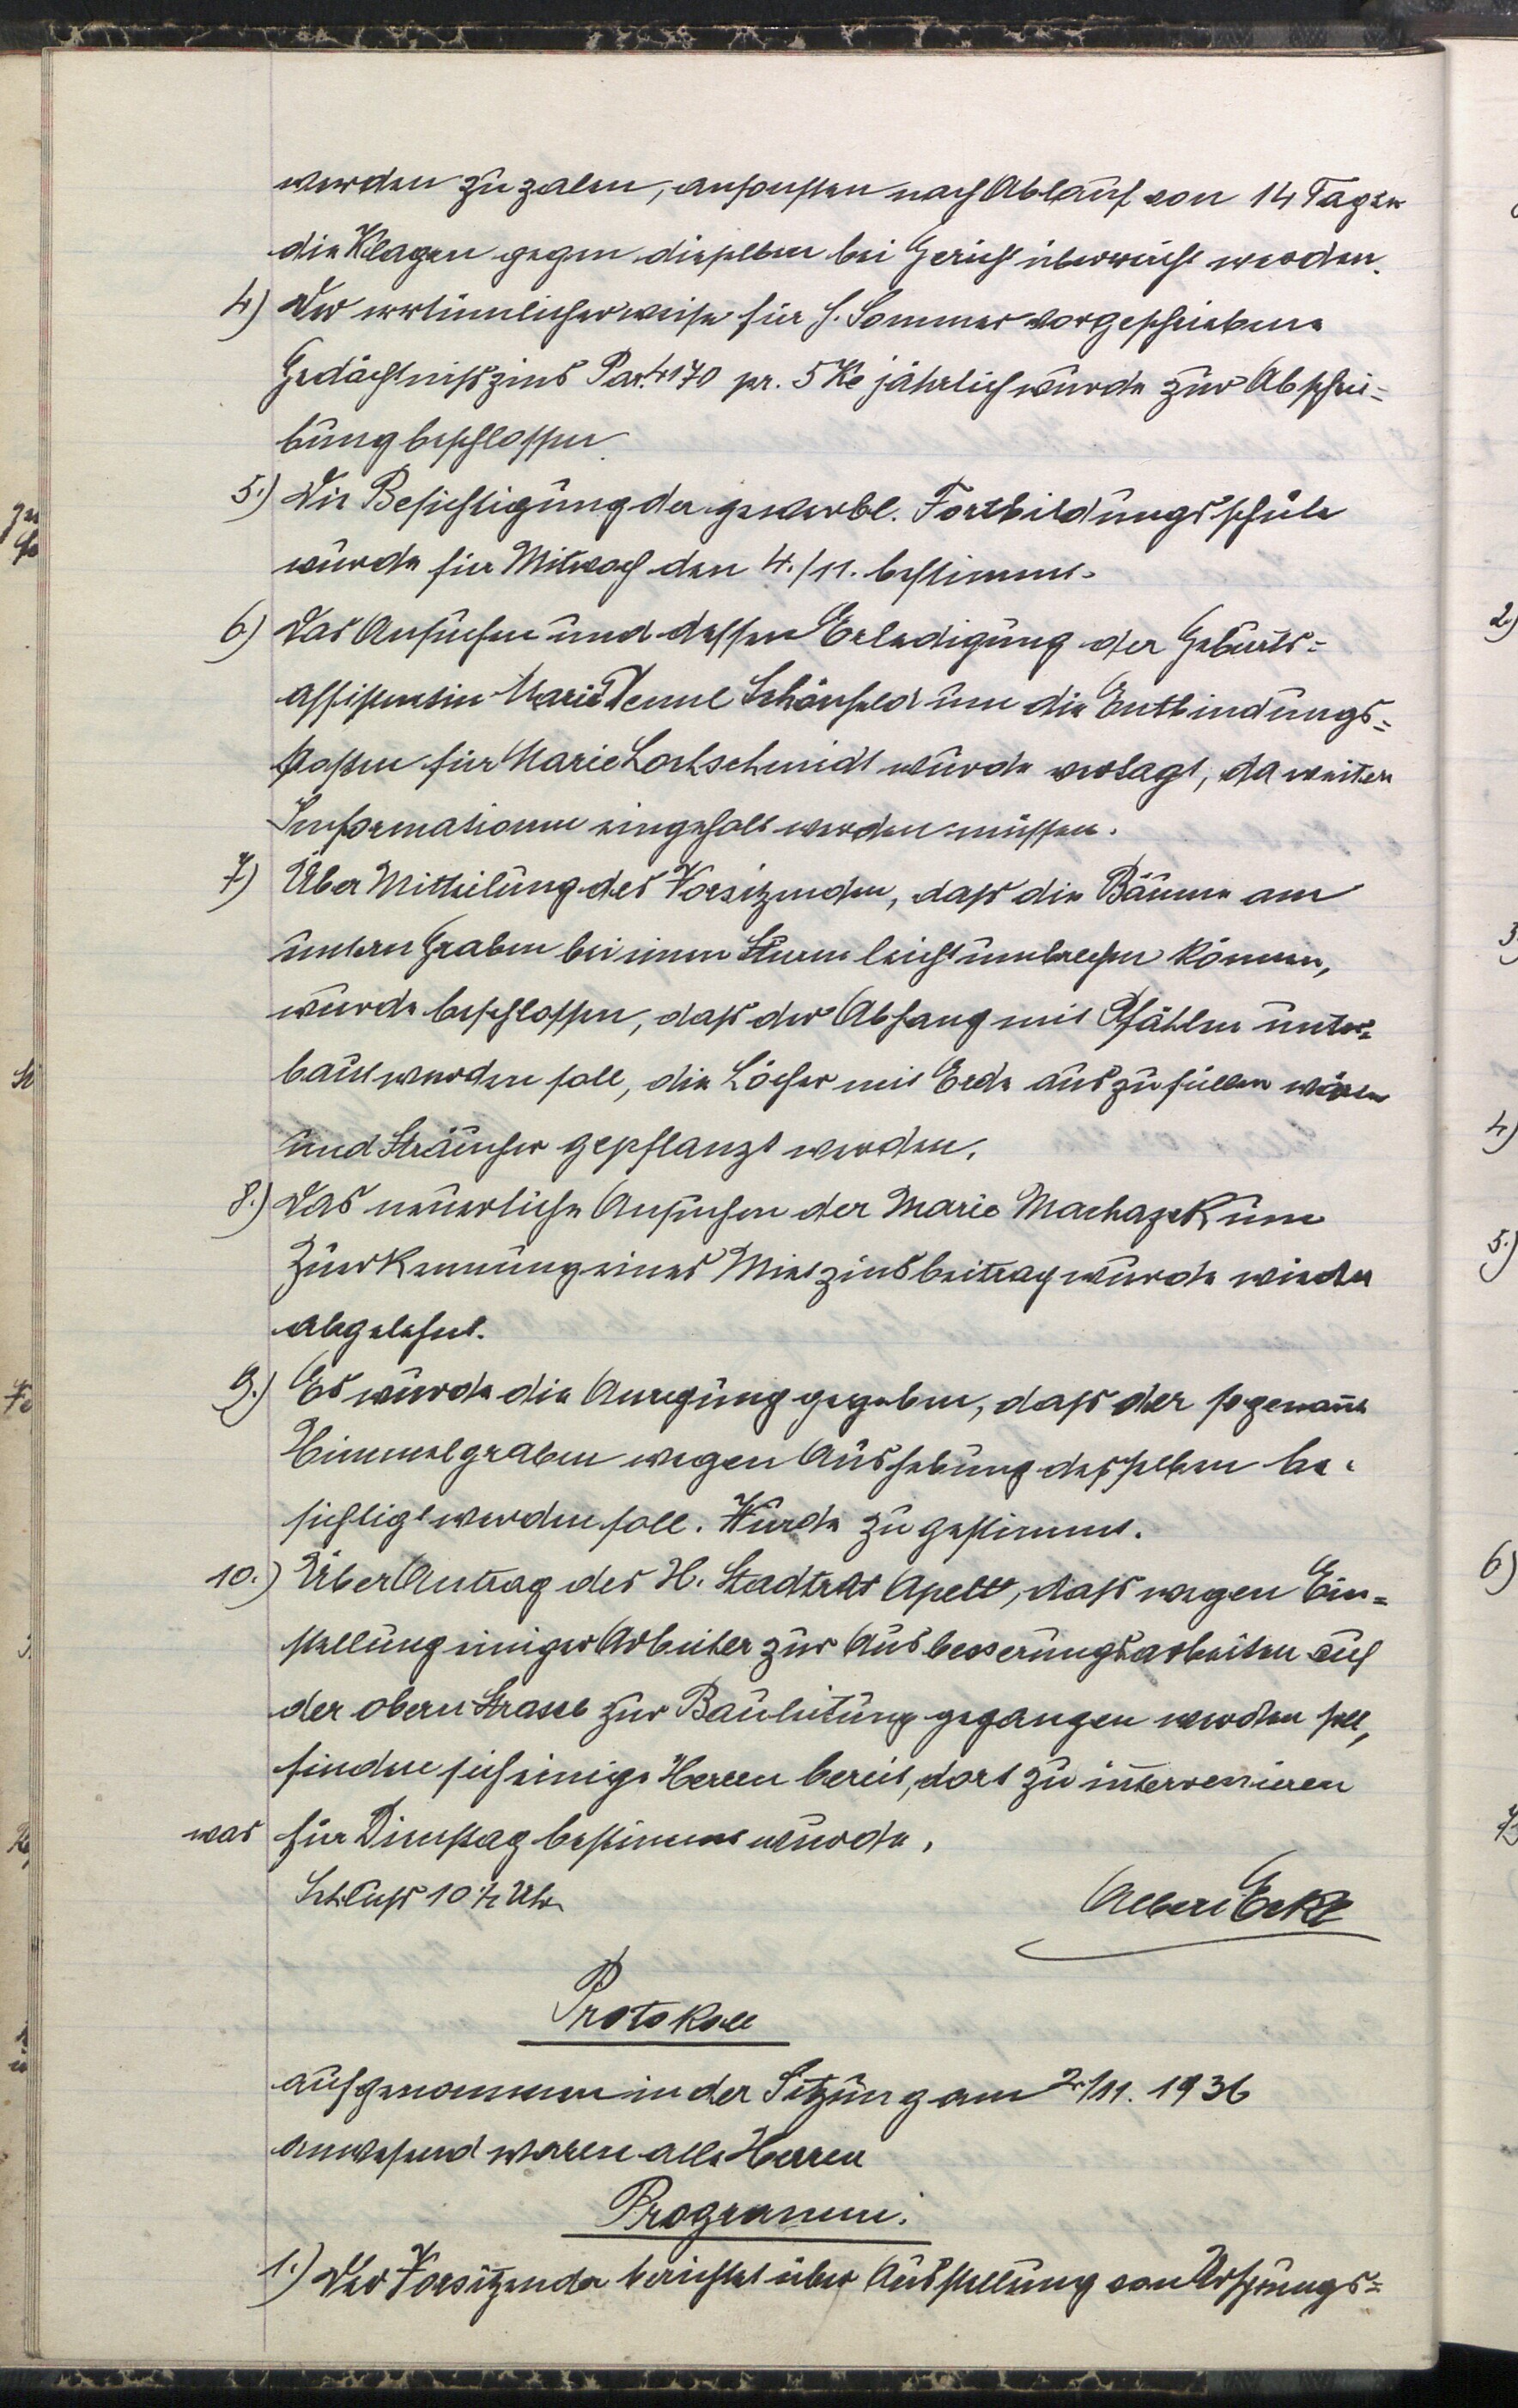 werden zu zalen, ansonsten nach Ablauf von 14 Tagen
die Klagen gegen dieselben bei Gericht überreicht werden.
4) Der irrtümlicherweise für H. Sommer vorgeschriebene
Gedächtnisszins Par. 4170 pr. 5 Kč jährlich wurde zur Abschrei=
bung beschlossen
5.) Die Besichtigung der gewerbl. Fortbildungsschule
wurde für Mitwoch den 4./11. bestimmt.
6.) Das Ansuchen und dessen Erledigung der Geburts=
assistentin Marie Schönfeld um die Entbindungs=
kosten für Marie Lochschmidt wurde vertagt, da weitere
Informationen eingeholt werden müssen.
7) Über Mitteilung des Vorsitzenden, dass die Bäume am
untern Graben bei einem Sturm leicht umbrechen können,
wurde beschlossen, dass der Abhang mit Pfählen unter=
baut werden soll, die Löcher mit Erde auszufüllen wären
und Sträucher gepflanzt werden.
8.) Das neuerliche Ansuchen der Marie Machazek um
Zuerkennung eines Mietzinsbeitrag wurde wieder
abgelehnt.
9.) Es wurde die Anregung gegeben, dass der sogenan̄te
Himmelgraben wegen Aushebung desselben be=
sichtigt werden soll. Wurde zugestimmt.
10.) Über Antrag des H. Stadtrat Apelt, dass wegen Ein=
stellung einiger Arbeiter zur Ausbesserungsarbeiten auf
der obern Strasse zur Bauleitung gegangen werden soll,
finden sich einige Herren bereit, dort zu intervenieren
was für Dienstag bestimmt wurde.
Schluss 10 ½ Uhr
Albert Eckl
Protokoll
aufgenommen in der Sitzung am 2./11. 1936
anwesend waren alle Herren
Programm.
1.) Der Vorsitzende berichtet über Ausstellung von Ursprungs=